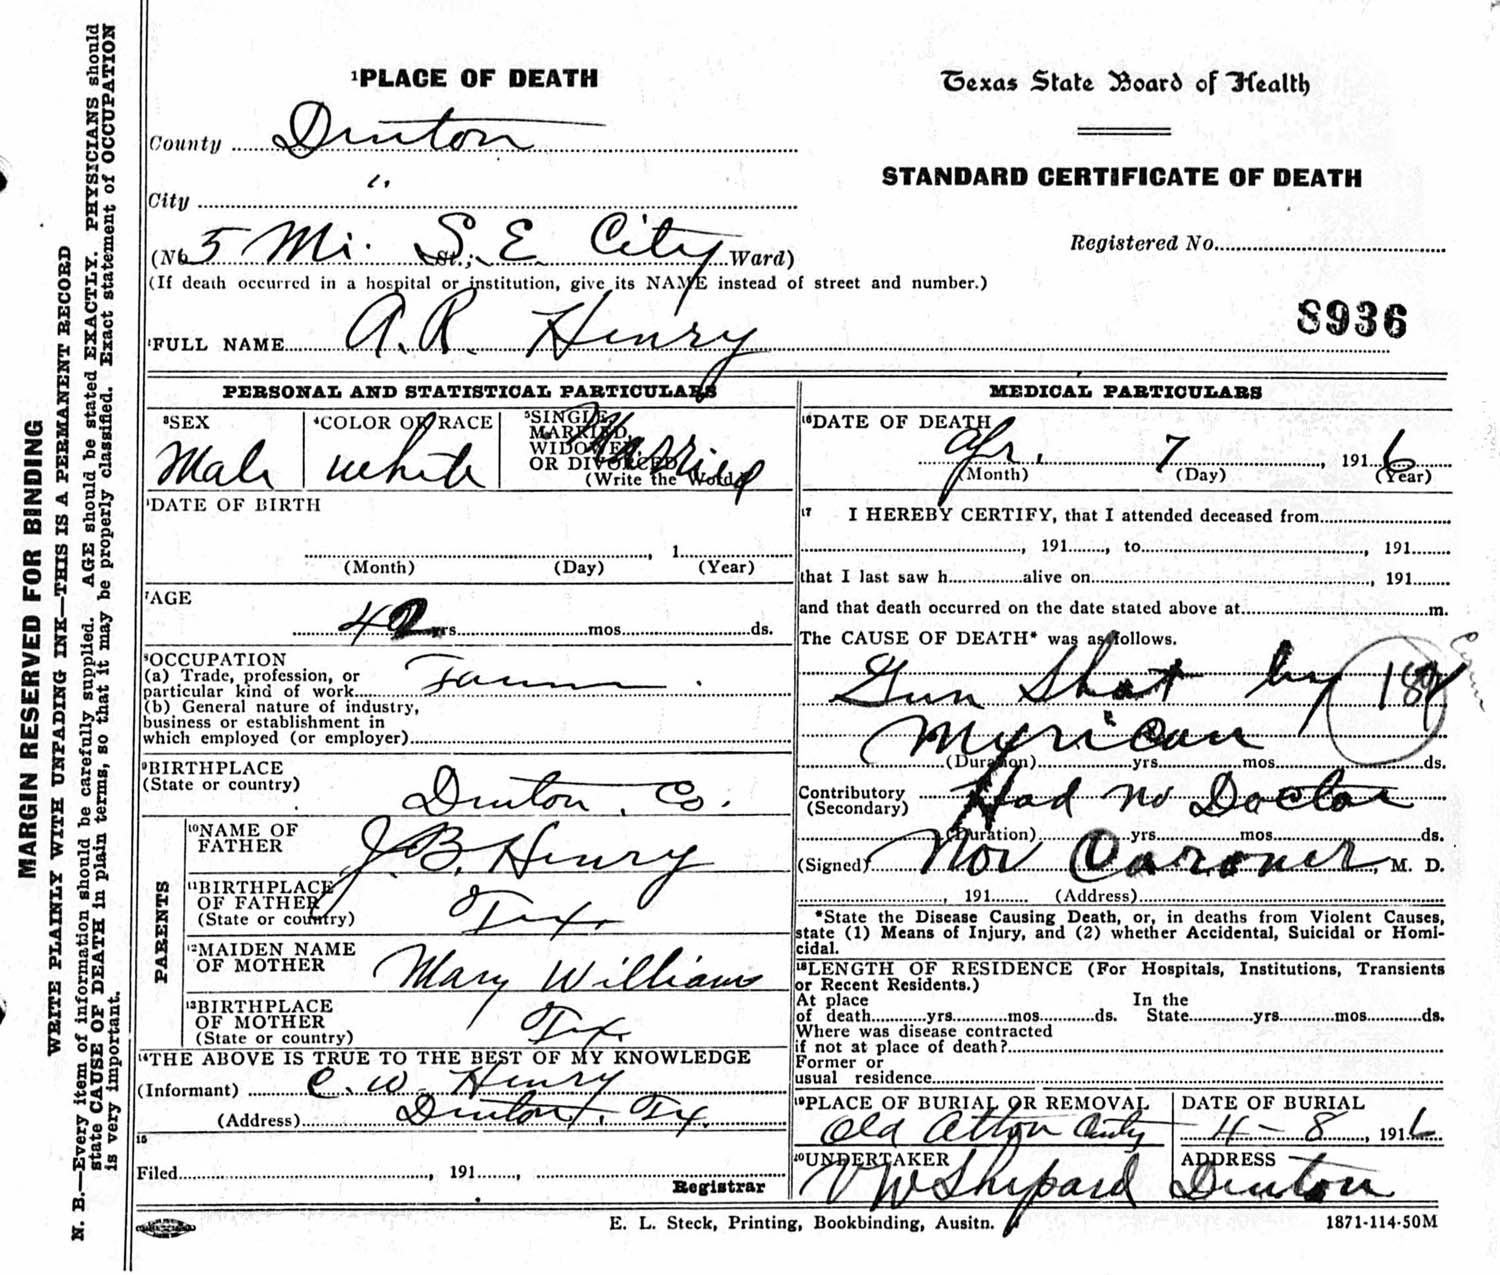 MARGIN RESERVED FOR BINDING
WRITE PLAINLY WITH UNFADING INK—THIS IS A PERMANENT RECORD
N. B.—Every item of information should be carefully supplied. AGE should be stated EXACTLY. PHYSICIANS should
state CAUSE OF DEATH in plain terms, so that it may be properly classified. Exact statement of OCCUPATION
is very important.
1PLACE OF DEATH
County Denton
City "
(No 5 Mi. St.; S. E. City Ward)
(If death occurred in a hospital or institution, give its NAME instead of street and number.)
Texas State Board of Health
STANDARD CERTIFICATE OF DEATH
Registered No.
8936
FULL NAME A. R. Henry
PERSONAL AND STATISTICAL PARTICULARS
3SEX
Male
4COLOR OR RACE
White
5SINGLE,
MARRIED,
WIDOWED,
OR DIVORCED
(Write the Word)
Married
DATE OF BIRTH
, 1
(Month) (Day) (Year)
7AGE
42 yrs. mos. ds.
8OCCUPATION
(a) Trade, profession, or
particular kind of work Farmer
(b) General nature of industry,
business or establishment in
which employed (or employer)
9BIRTHPLACE
(State or country)
Denton Co.
PARENTS
10NAME OF
FATHER
J. B. Henry
11BIRTHPLACE
OF FATHER
(State or country)
Tex.
12MAIDEN NAME
OF MOTHER
Mary Williams
13BIRTHPLACE
OF MOTHER
(State or country)
Tex.
14THE ABOVE IS TRUE TO THE BEST OF MY KNOWLEDGE
(Informant) C. W. Henry
(Address) Denton, Tx.
15
Filed , 191 ,
Registrar
MEDICAL PARTICULARS
16DATE OF DEATH
Apr. 7 , 1916
(Month) (Day) (Year)
17 I HEREBY CERTIFY, that I attended deceased from
, 191 , to , 191
that I last saw h alive on , 191
and that death occurred on the date stated above at m.
The CAUSE OF DEATH* was as follows.
Gun Shot by
(Duration) yrs. mos. ds.
Contributory Had no Doctor
(Secondary)
(Duration) yrs. mos. ds.
(Signed) Nor Coroner , M. D.
, 191 (Address)
*State the Disease Causing Death, or, in deaths from Violent Causes,
state (1) Means of Injury, and (2) whether Accidental, Suicidal or Homi-
cidal.
18LENGTH OF RESIDENCE (For Hospitals, Institutions, Transients
or Recent Residents.)
At place In the
of death yrs. mos. ds. State yrs. mos. ds.
Where was disease contracted
if not at place of death?
Former or
usual residence
19PLACE OF BURIAL OR REMOVAL
Old Alton
DATE OF BURIAL
4 - 8 , 1916
20UNDERTAKER
V W Shepard
ADDRESS
Denton
E. L. Steck, Printing, Bookbinding, Ausitn.
1871-114-50M